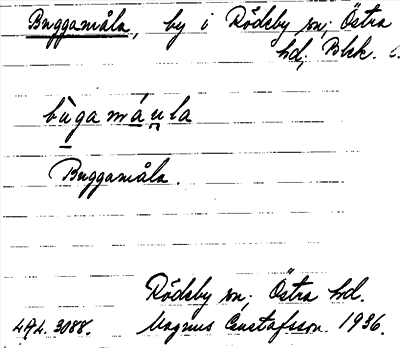 Buggamåla, by i Rödeby sn; Östra
hd; Blek.
bùgamáula
Buggamåla.
Rödeby sn; Östra hd.
LAL. 3088. Magnus Gustafsson. 1936.